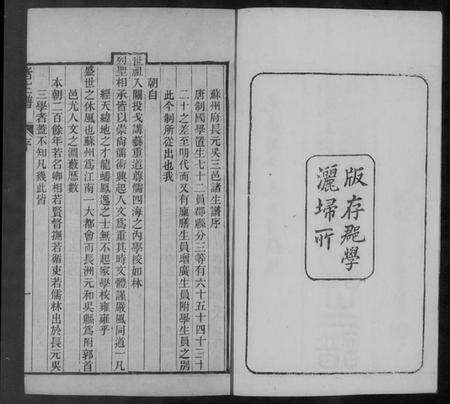 版存羣學
灑埽所
蘇州府長元吳三邑諸生譜序
唐制國學置生七十二員郡縣分三等有六十五十四十三十
二十之差至明代而又有廩膳生員增廣生員附學生員之別
此今制所從出也我
朝自
世祖入關投戈講藝重道尊儒四海之內學校如林
列聖相承皆以崇尚儒術興起人文為重其時文體謹嚴風同道一凡
經天緯地之才龍蟠鳳逸之士無不起家學校雍雍乎
盛世之休風也蘇州為江南一大都會而長洲元和吳縣為附郭首
邑尤人文之淵藪歷數
本朝二百餘年若名卿相若賢督撫若循吏若儒林出於長元吳
三學者蓋不知凡幾此皆
序
一